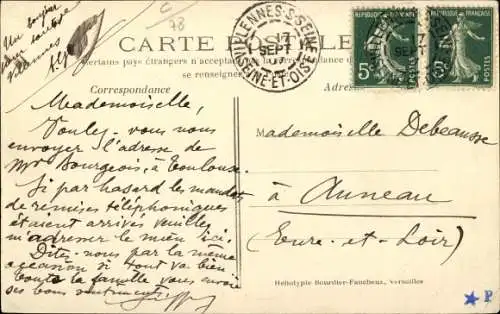 Un bonjour
pour toute de
Villennes
C
78
CARTE POSTALE
Certains pays étrangers n'acceptent
se renseigner
Correspondance
Adres
VILLENNES-S-SEINE
17
SEPT
07
SEINE-ET-OISE
REPUBLIQUE FRANÇAISE
5c
POSTES
REPUBLIQUE FRANÇAISE
5c
POSTES
Mademoiselle,
Voulez-vous nous
envoyer l'adresse de
Mr Bourgeois, à Toulouse.
Si par hasard les mandats
de remises téléphoniques
étaient arrivés veuillez
m'adresser le mien ici.
Dites-nous par la même
occasion si tout va bien
toute la famille vous envoie
ses bons sentiments.
Mademoiselle Debeausse
à Auneau
(Eure-et-Loir)
Héliotypie Bourdier-Faucheux, Versailles
P